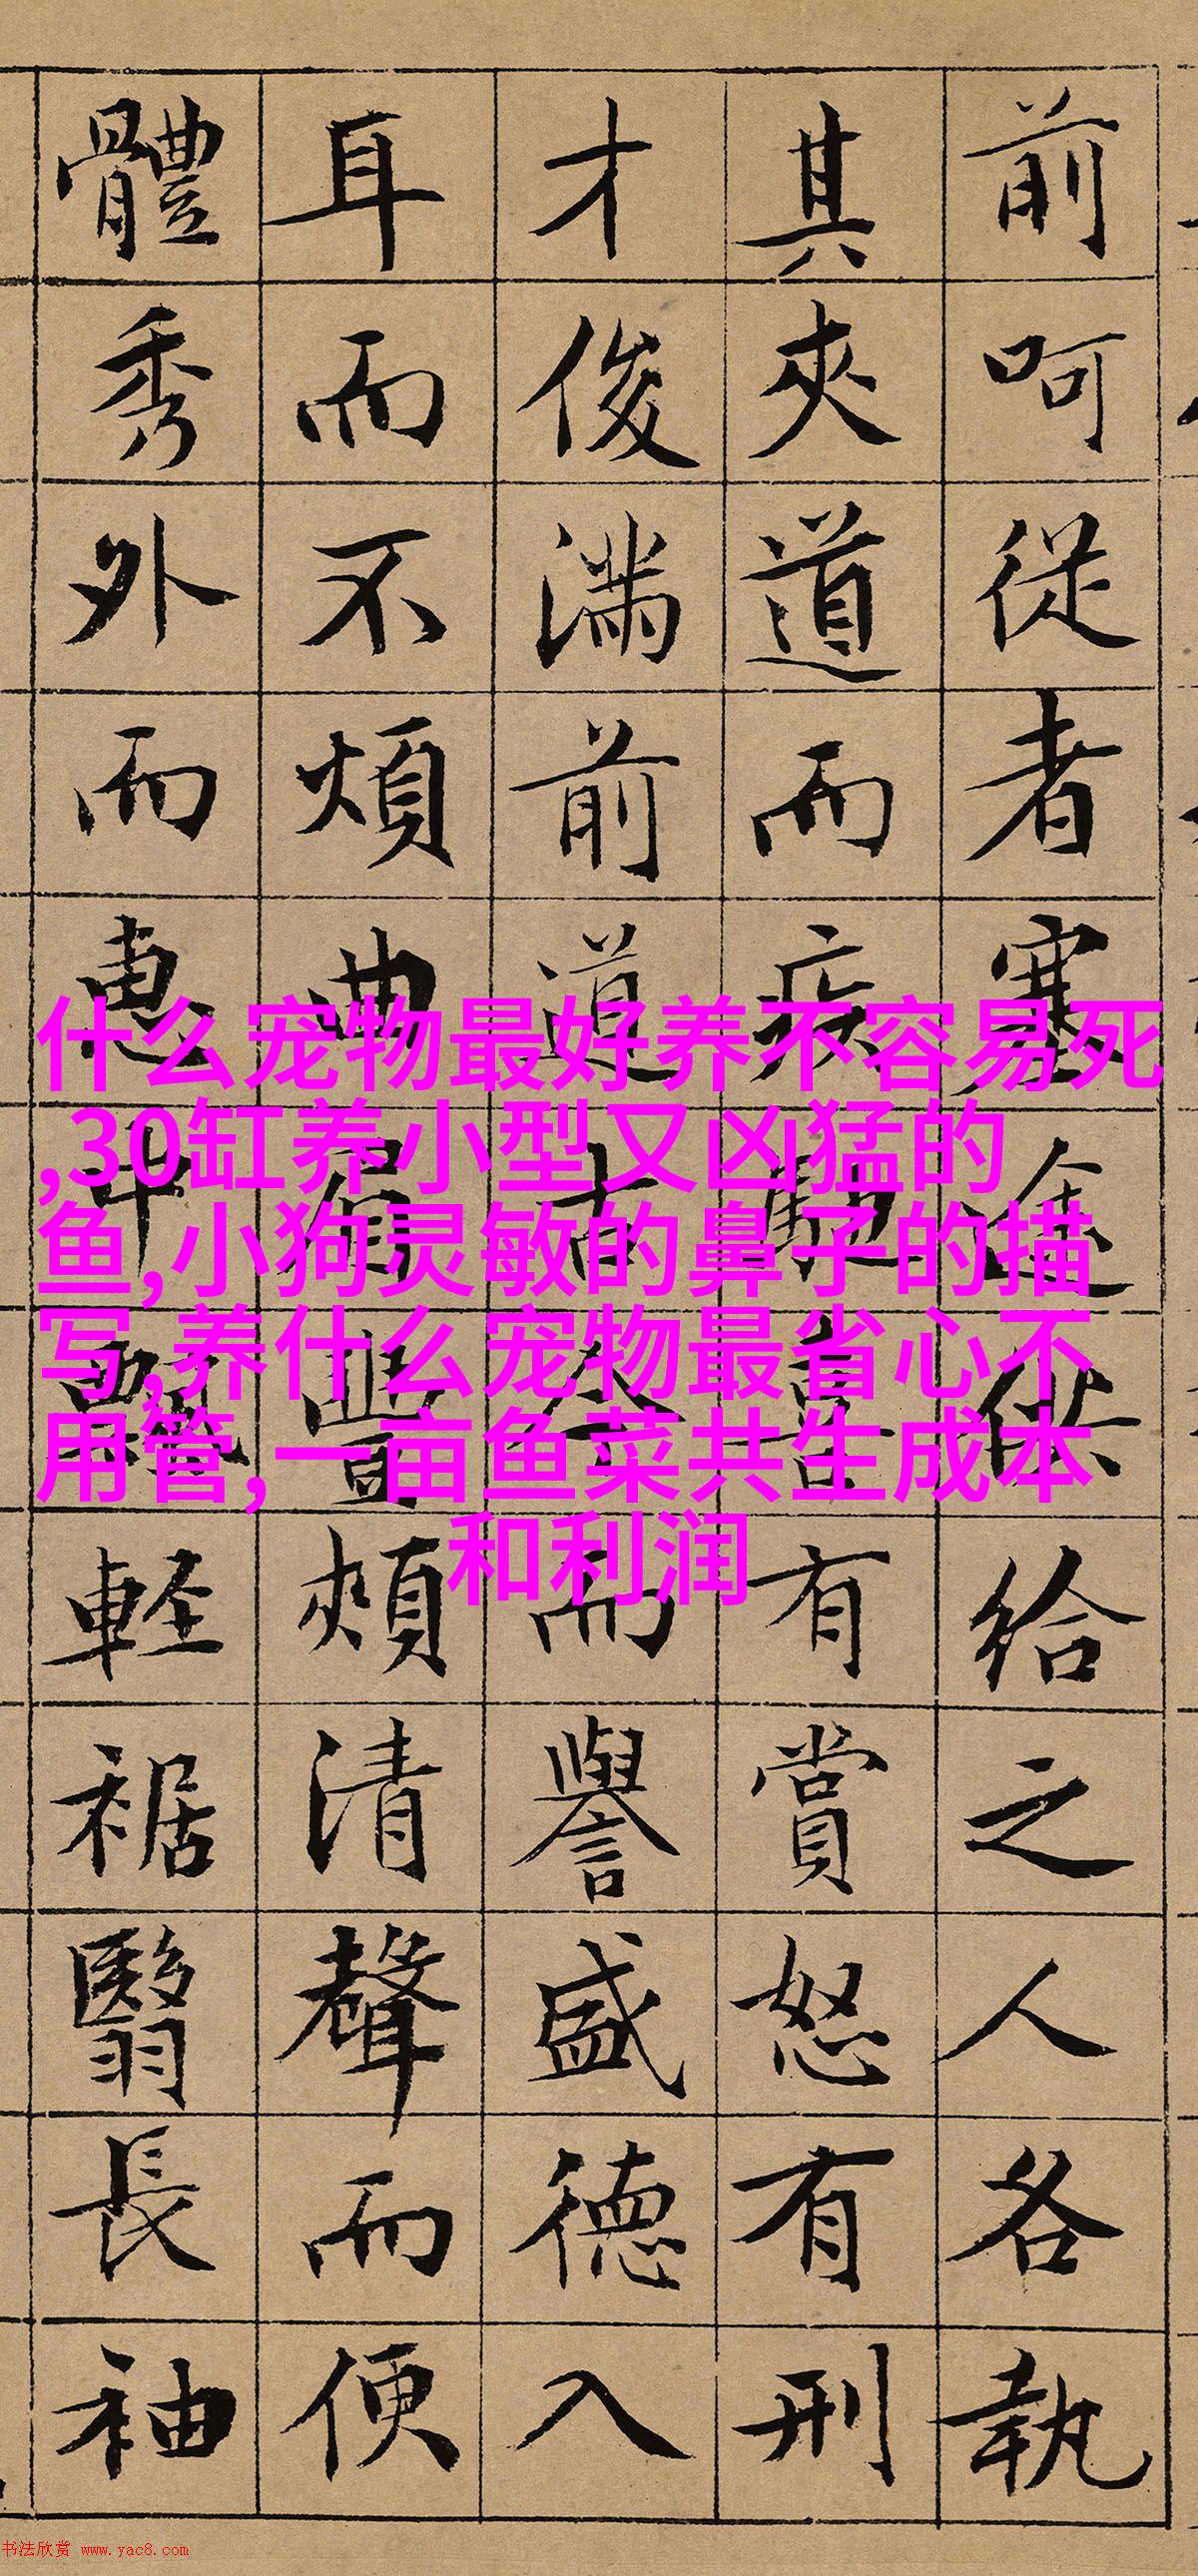 前呵從者塞途供給之人各執
其夾道而疾馳喜有賞怒有刑
才俊满前道古今而譽盛德入
耳而不煩曲眉豐頰清聲而便
體秀外而惠中飄軽裾翳長袖
什么宠物最好养不容易死
,30缸养小型又凶猛的
鱼,小狗灵敏的鼻子的描
写,养什么宠物最省心不
用管,一亩鱼菜共生成本
和利润
书法欣赏 www.yac8.com